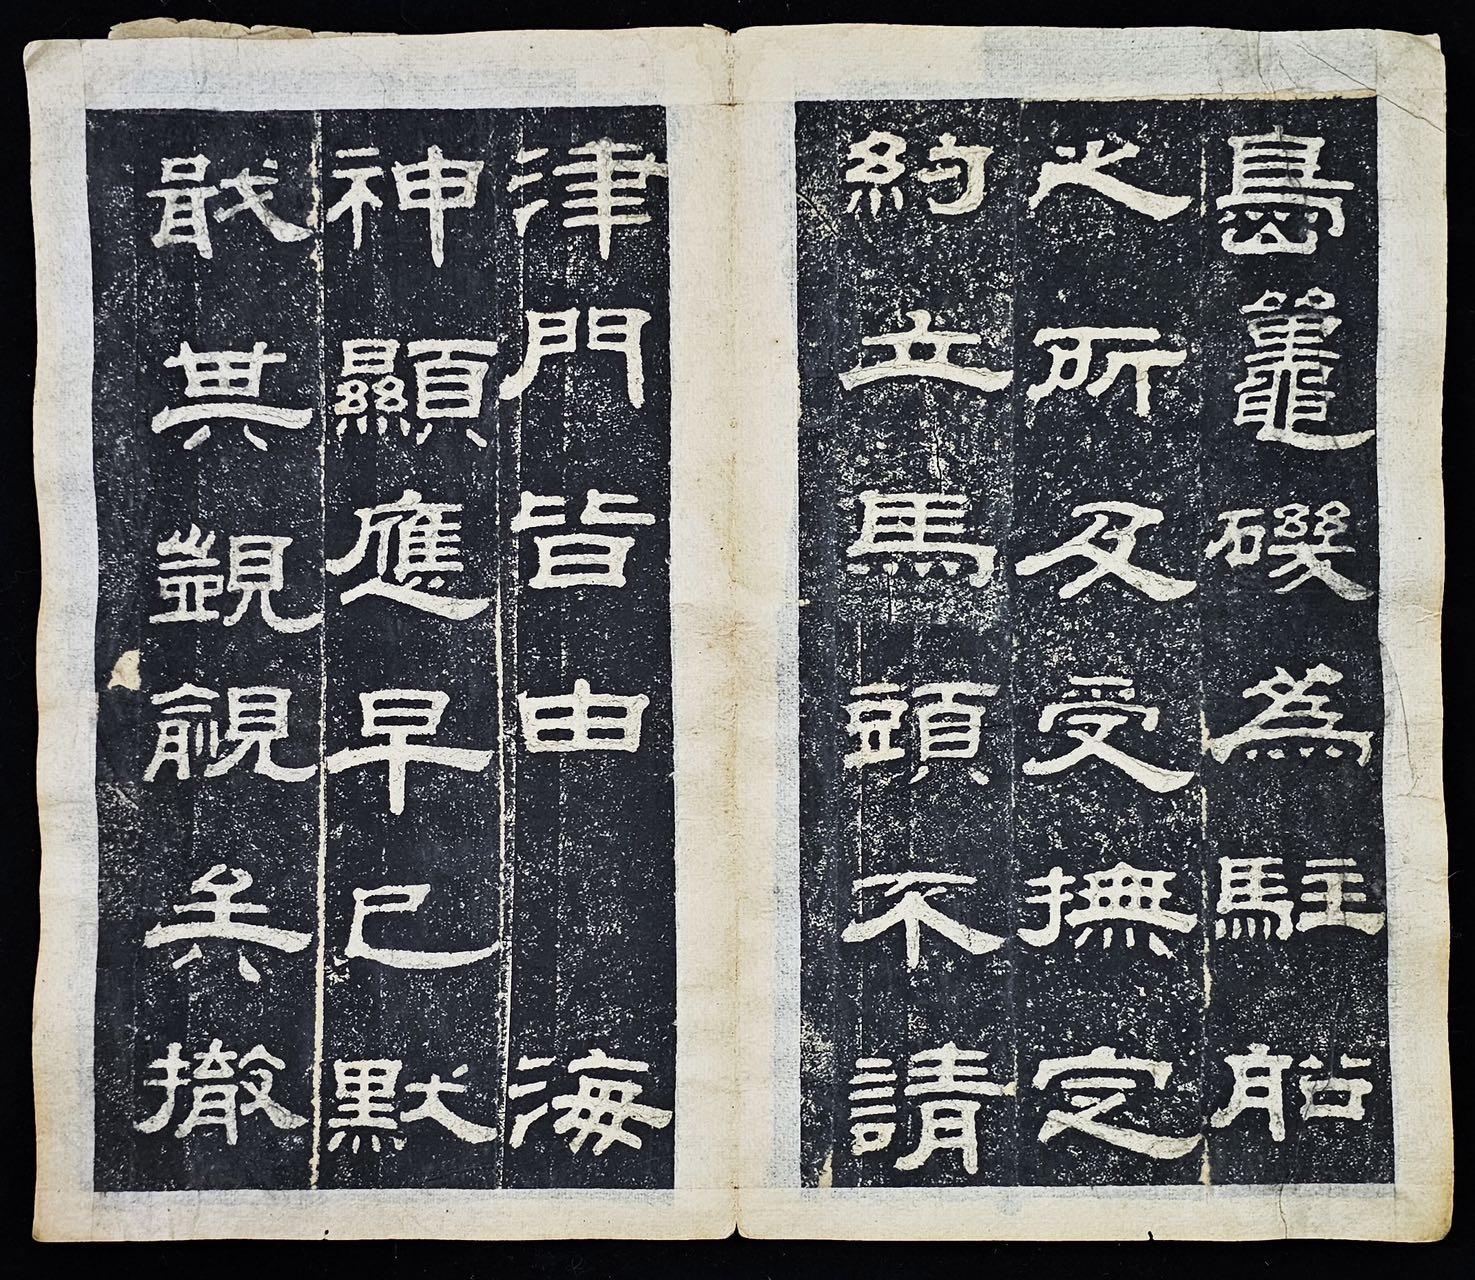 島鼉磯為駐船
之所及受撫定
約立馬頭不請
津門皆由海
神顯應早已默
戢其覬覦矣撤